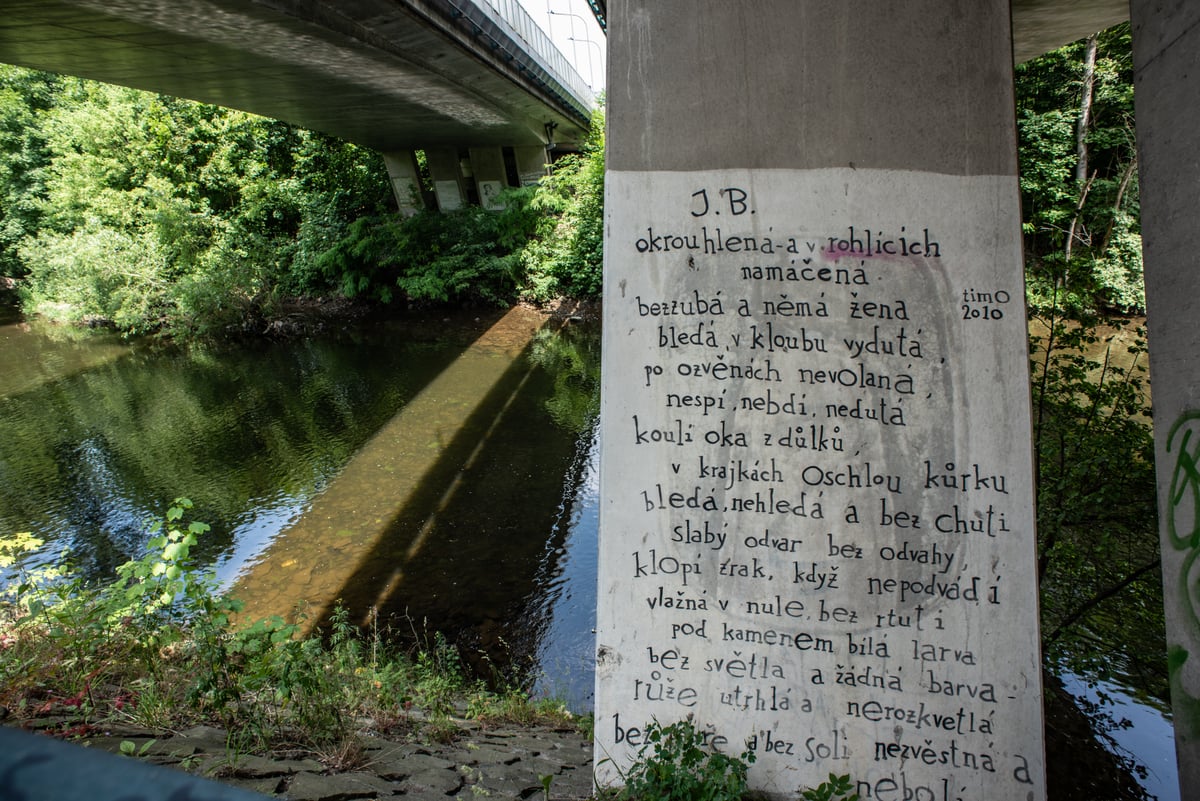 J.B.
okrouhlená-a v rohlících
namáčená
bezzubá a němá žena
bledá, v kloubu vydutá,
po ozvěnách nevolaná,
nespí, nebdí, nedutá
koulí oka z důlků,
v krajkách oschlou kůrku
bledá, nehledá a bez chuti
slabý odvar bez odvahy,
klopí zrak, když nepodvádí
vlažná v nule, bez rtuti
pod kamenem bílá larva
bez světla a žádná barva -
růže utrhlá a nerozkvetlá
a bez soli nezvěstná a
nebolí
timO
2010